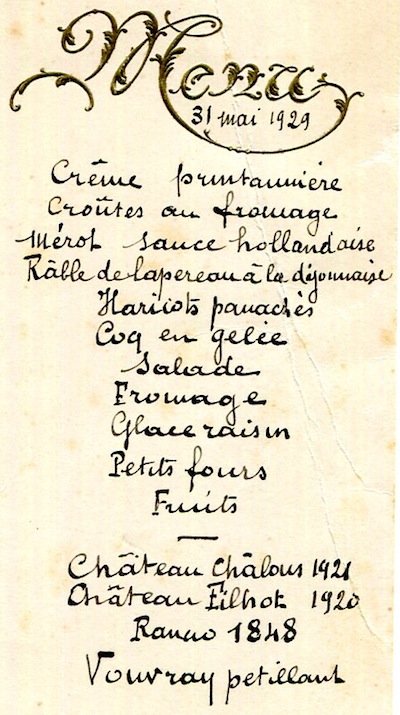 Menu
31 mai 1929
Crême printannière
Croûtes au fromage
Mérot sauce hollandaise
Râble de lapereau à la dijonnaise
Haricots panachés
Coq en gelée
Salade
Fromage
Glace raisin
Petits fours
Fruits
Château Châlons 1921
Château Filhot 1920
1848
Vouvray petillant